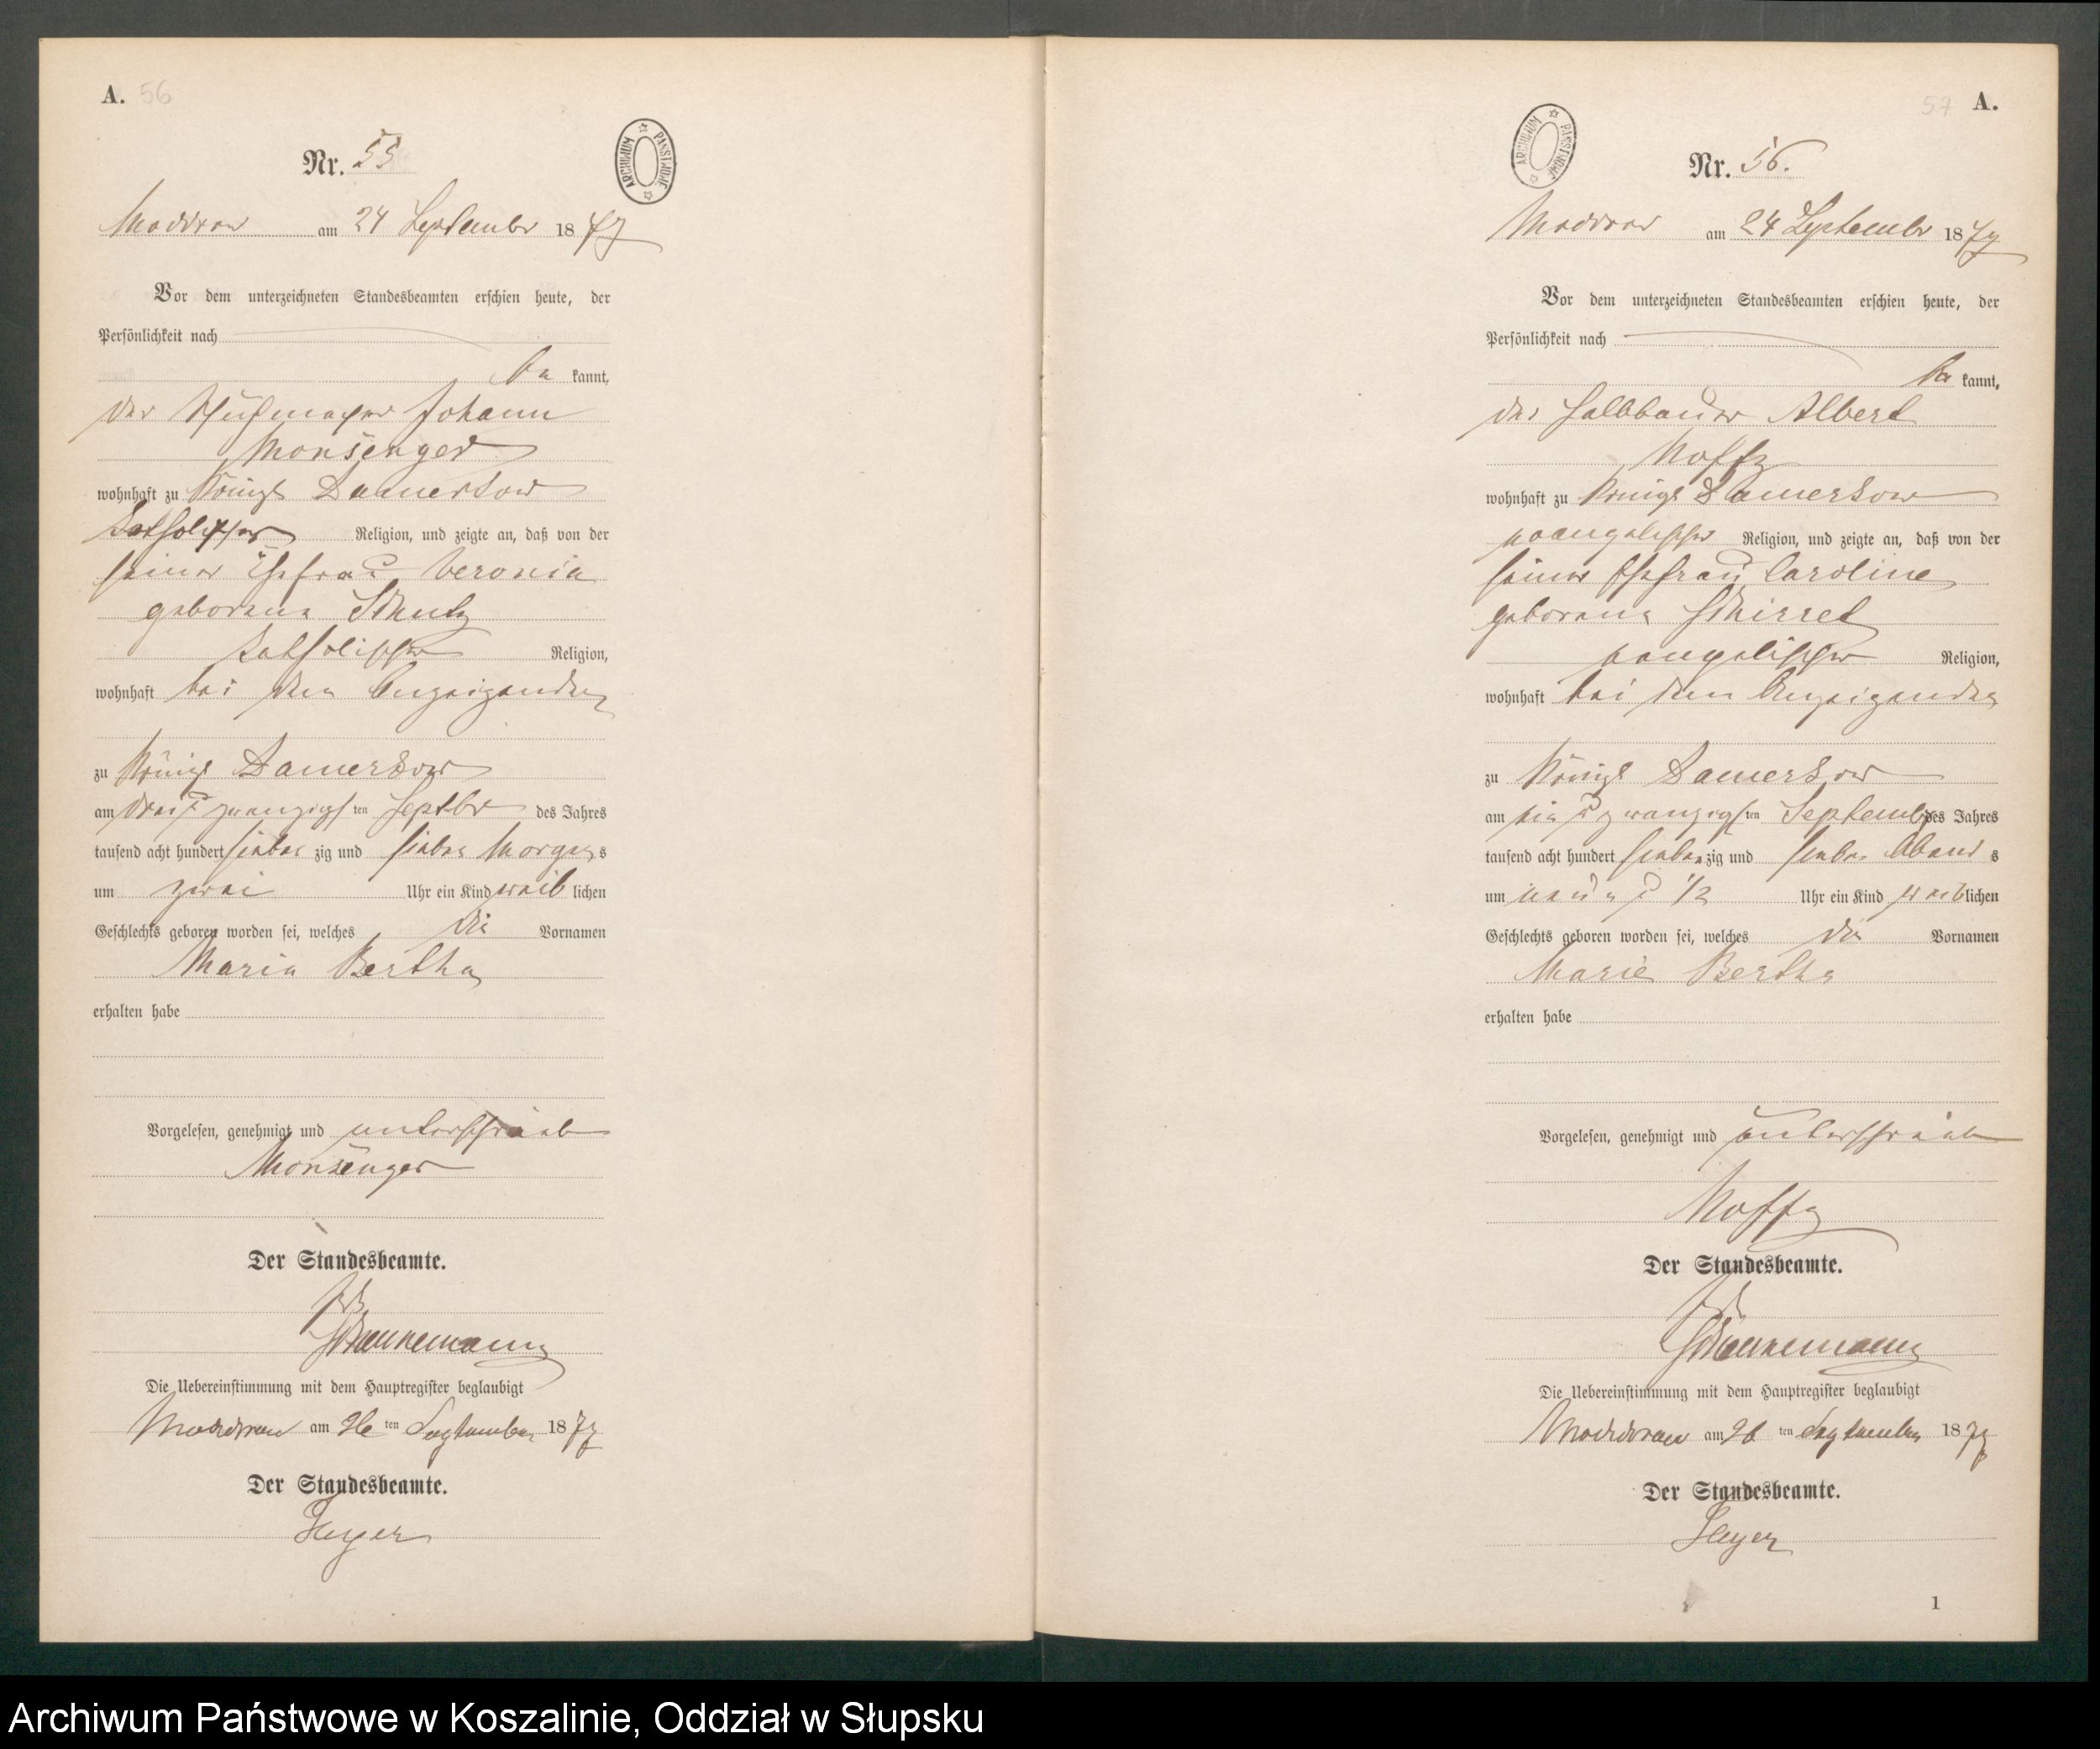 A. 56
ARCHIWUM PAŃSTWOWE
Nr. 55
Moddrow am 24 September 1877
Vor dem unterzeichneten Standesbeamten erschien heute, der
Persönlichkeit nach
be kannt,
der Johann
Monsenger
wohnhaft zu Königl Damerkow
katholischer Religion, und zeigte an, daß von der
seiner Ehefrau Veronia
geborene Schutz
katholischer Religion,
wohnhaft bei dem Anzeigenden
zu Königl Damerkow
am drei u zwanzigsten Septbr des Jahres
tausend acht hundert sieben zig und sieben Morgens
um zwei Uhr ein Kind weiblichen
Geschlechts geboren worden sei, welches die Vornamen
Maria Bertha
erhalten habe
Vorgelesen, genehmigt und unterschrieben
Monsenger
Der Standesbeamte.
Die Uebereinstimmung mit dem Hauptregister beglaubigt
Moddrow am 26 ten September 1877
Der Standesbeamte.
57 A.
ARCHIWUM PAŃSTWOWE
Nr. 56.
Moddrow am 24 September 1877
Vor dem unterzeichneten Standesbeamten erschien heute, der
Persönlichkeit nach
be kannt,
der Halbbauer Albert
Noffz
wohnhaft zu Königl Damerkow
evangelischer Religion, und zeigte an, daß von der
seiner Ehefrau Caroline
geborene
evangelischer Religion,
wohnhaft bei dem Anzeigenden
zu Königl Damerkow
am ein u zwanzigsten September des Jahres
tausend acht hundert siebenzig und sieben Abends
um neun u 1/2 Uhr ein Kind weiblichen
Geschlechts geboren worden sei, welches die Vornamen
Marie Bertha
erhalten habe
Vorgelesen, genehmigt und unterschrieben
Noffz
Der Standesbeamte.
Die Uebereinstimmung mit dem Hauptregister beglaubigt
Moddrow am 26 ten September 1877
Der Standesbeamte.
1
Archiwum Państwowe w Koszalinie, Oddział w Słupsku